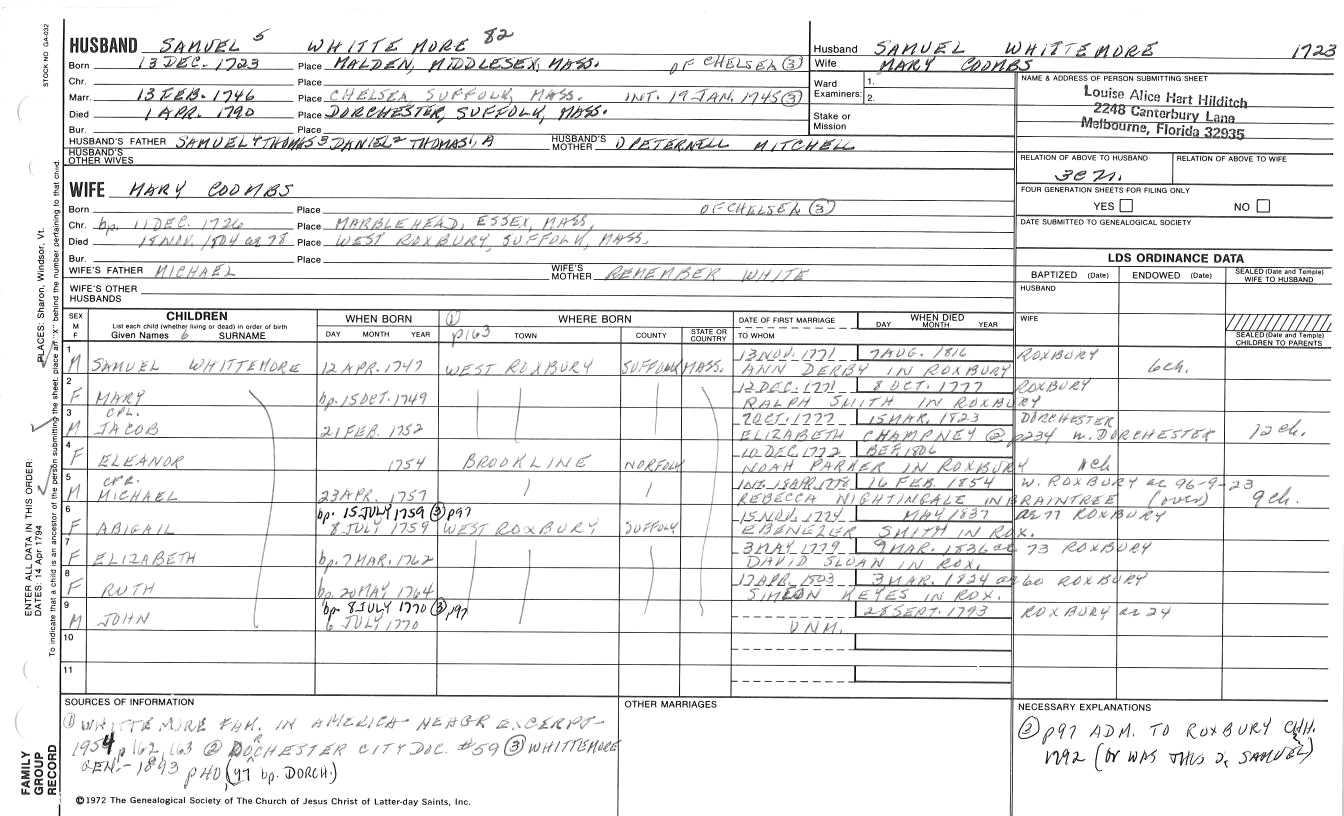 STOCK NO GA-032
HUSBAND SAMUEL 5 WHITTEMORE 82
Born 13 DEC. 1723 Place MALDEN, MIDDLESEX, MASS. OF CHELSEA (3)
Chr. Place
Marr. 13 FEB. 1746 Place CHELSEA SUFFOLK, MASS. INT. 19 JAN. 1745 (3)
Died 1 APR. 1790 Place DORCHESTER, SUFFOLK, MASS.
Bur. Place
HUSBAND'S FATHER SAMUEL 4 THOMAS 3 DANIEL 2 THOMAS 1, A HUSBAND'S MOTHER D PETERNELL MITCHELL
HUSBAND'S OTHER WIVES
WIFE MARY COOMBS
Born Place OF CHELSEA (3)
Chr. bp. 11 DEC. 1726 Place MARBLEHEAD, ESSEX, MASS,
Died 15 NOV. 1804 ae 78 Place WEST ROXBURY, SUFFOLK, MASS.
Bur. Place
WIFE'S FATHER MICHAEL WIFE'S MOTHER REMEMBER WHITE
WIFE'S OTHER HUSBANDS
Husband SAMUEL WHITTEMORE 1723
Wife MARY COOMBS
Ward Examiners: 1. 2.
Stake or Mission
NAME & ADDRESS OF PERSON SUBMITTING SHEET
Louise Alice Hart Hilditch
2248 Canterbury Lane
Melbourne, Florida 32935
RELATION OF ABOVE TO HUSBAND RELATION OF ABOVE TO WIFE
FOUR GENERATION SHEETS FOR FILING ONLY
YES NO
DATE SUBMITTED TO GENEALOGICAL SOCIETY
LDS ORDINANCE DATA
BAPTIZED (Date) ENDOWED (Date) SEALED (Date and Temple) WIFE TO HUSBAND
HUSBAND
WIFE
SEALED (Date and Temple) CHILDREN TO PARENTS
SEX M F CHILDREN WHEN BORN (1) WHERE BORN DATE OF FIRST MARRIAGE WHEN DIED
List each child (whether living or dead) in order of birth
Given Names 6 SURNAME DAY MONTH YEAR p163 TOWN COUNTY STATE OR COUNTRY TO WHOM DAY MONTH YEAR
1 13 NOV. 1771 7 AUG. 1816 ROXBURY
M SAMUEL WHITTEMORE 12 APR. 1747 WEST ROXBURY SUFFOLK MASS. ANN DERBY IN ROXBURY 6ch.
2 12 DEC. 1771 8 OCT. 1777 ROXBURY
F MARY bp. 15 OCT. 1749 RALPH SMITH IN ROXBURY
3 CPL. 7 OCT. 1777 15 MAR. 1823 DORCHESTER
M JACOB 21 FEB. 1752 ELIZABETH CHAMPNEY @ p234 w. DORCHESTER 12 ch.
4 10 DEC. 1772 BEF. 1806
F ELEANOR 1754 BROOKLINE NORFOLK NOAH PARKER IN ROXBURY 1ch
5 CPR. INT. 18 APR. 1778 16 FEB. 1854 W. ROXBURY ae 96-9-23
M MICHAEL 23 APR. 1757 REBECCA NIGHTINGALE IN BRAINTREE (over) 9 ch.
6 bp. 15 JULY 1759 (3) p97 15 NOV. 1774 MAY 1837 ae 77 ROXBURY
F ABIGAIL 8 JULY 1759 WEST ROXBURY SUFFOLK EBENEZER SMITH IN ROX.
7 3 MAY 1779 9 MAR. 1836 ae 73 ROXBURY
F ELIZABETH bp. 7 MAR. 1762 DAVID SLOAN IN ROX.
8 17 APR. 1803 3 MAR. 1824 ae 60 ROXBURY
F RUTH bp. 20 MAY 1764 SIMEON KEYES IN ROX.
9 bp. 8 JULY 1770 (3) p97 28 SEPT. 1793 ROXBURY ae 24
M JOHN 6 JULY 1770 UNM.
10
11
SOURCES OF INFORMATION
(1) WHITTEMORE FAM. IN AMERICA - NEHGR EXCERPT -
1954 p 162, 163 (2) DORCHESTER CITY DOC. #59 (3) WHITTEMORE
GEN. - 1893 (97 bp. DORCH.)
OTHER MARRIAGES
NECESSARY EXPLANATIONS
(3) p97 ADM. TO ROXBURY CHH.
1792 (OR WAS THIS D. SAMUEL)
©1972 The Genealogical Society of The Church of Jesus Christ of Latter-day Saints, Inc.
FAMILY GROUP RECORD
ENTER ALL DATA IN THIS ORDER:
DATES: 14 Apr 1794 PLACES: Sharon, Windsor, Vt.
To indicate that a child is an ancestor of the person submitting the sheet, place an "X" behind the number pertaining to that child.